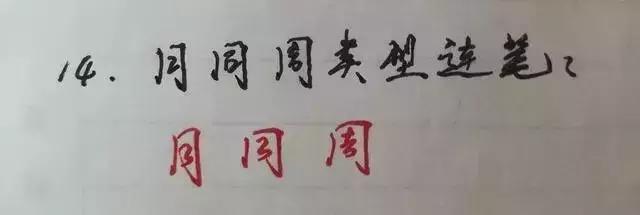 14. 月同周类型连笔:
月 同 周